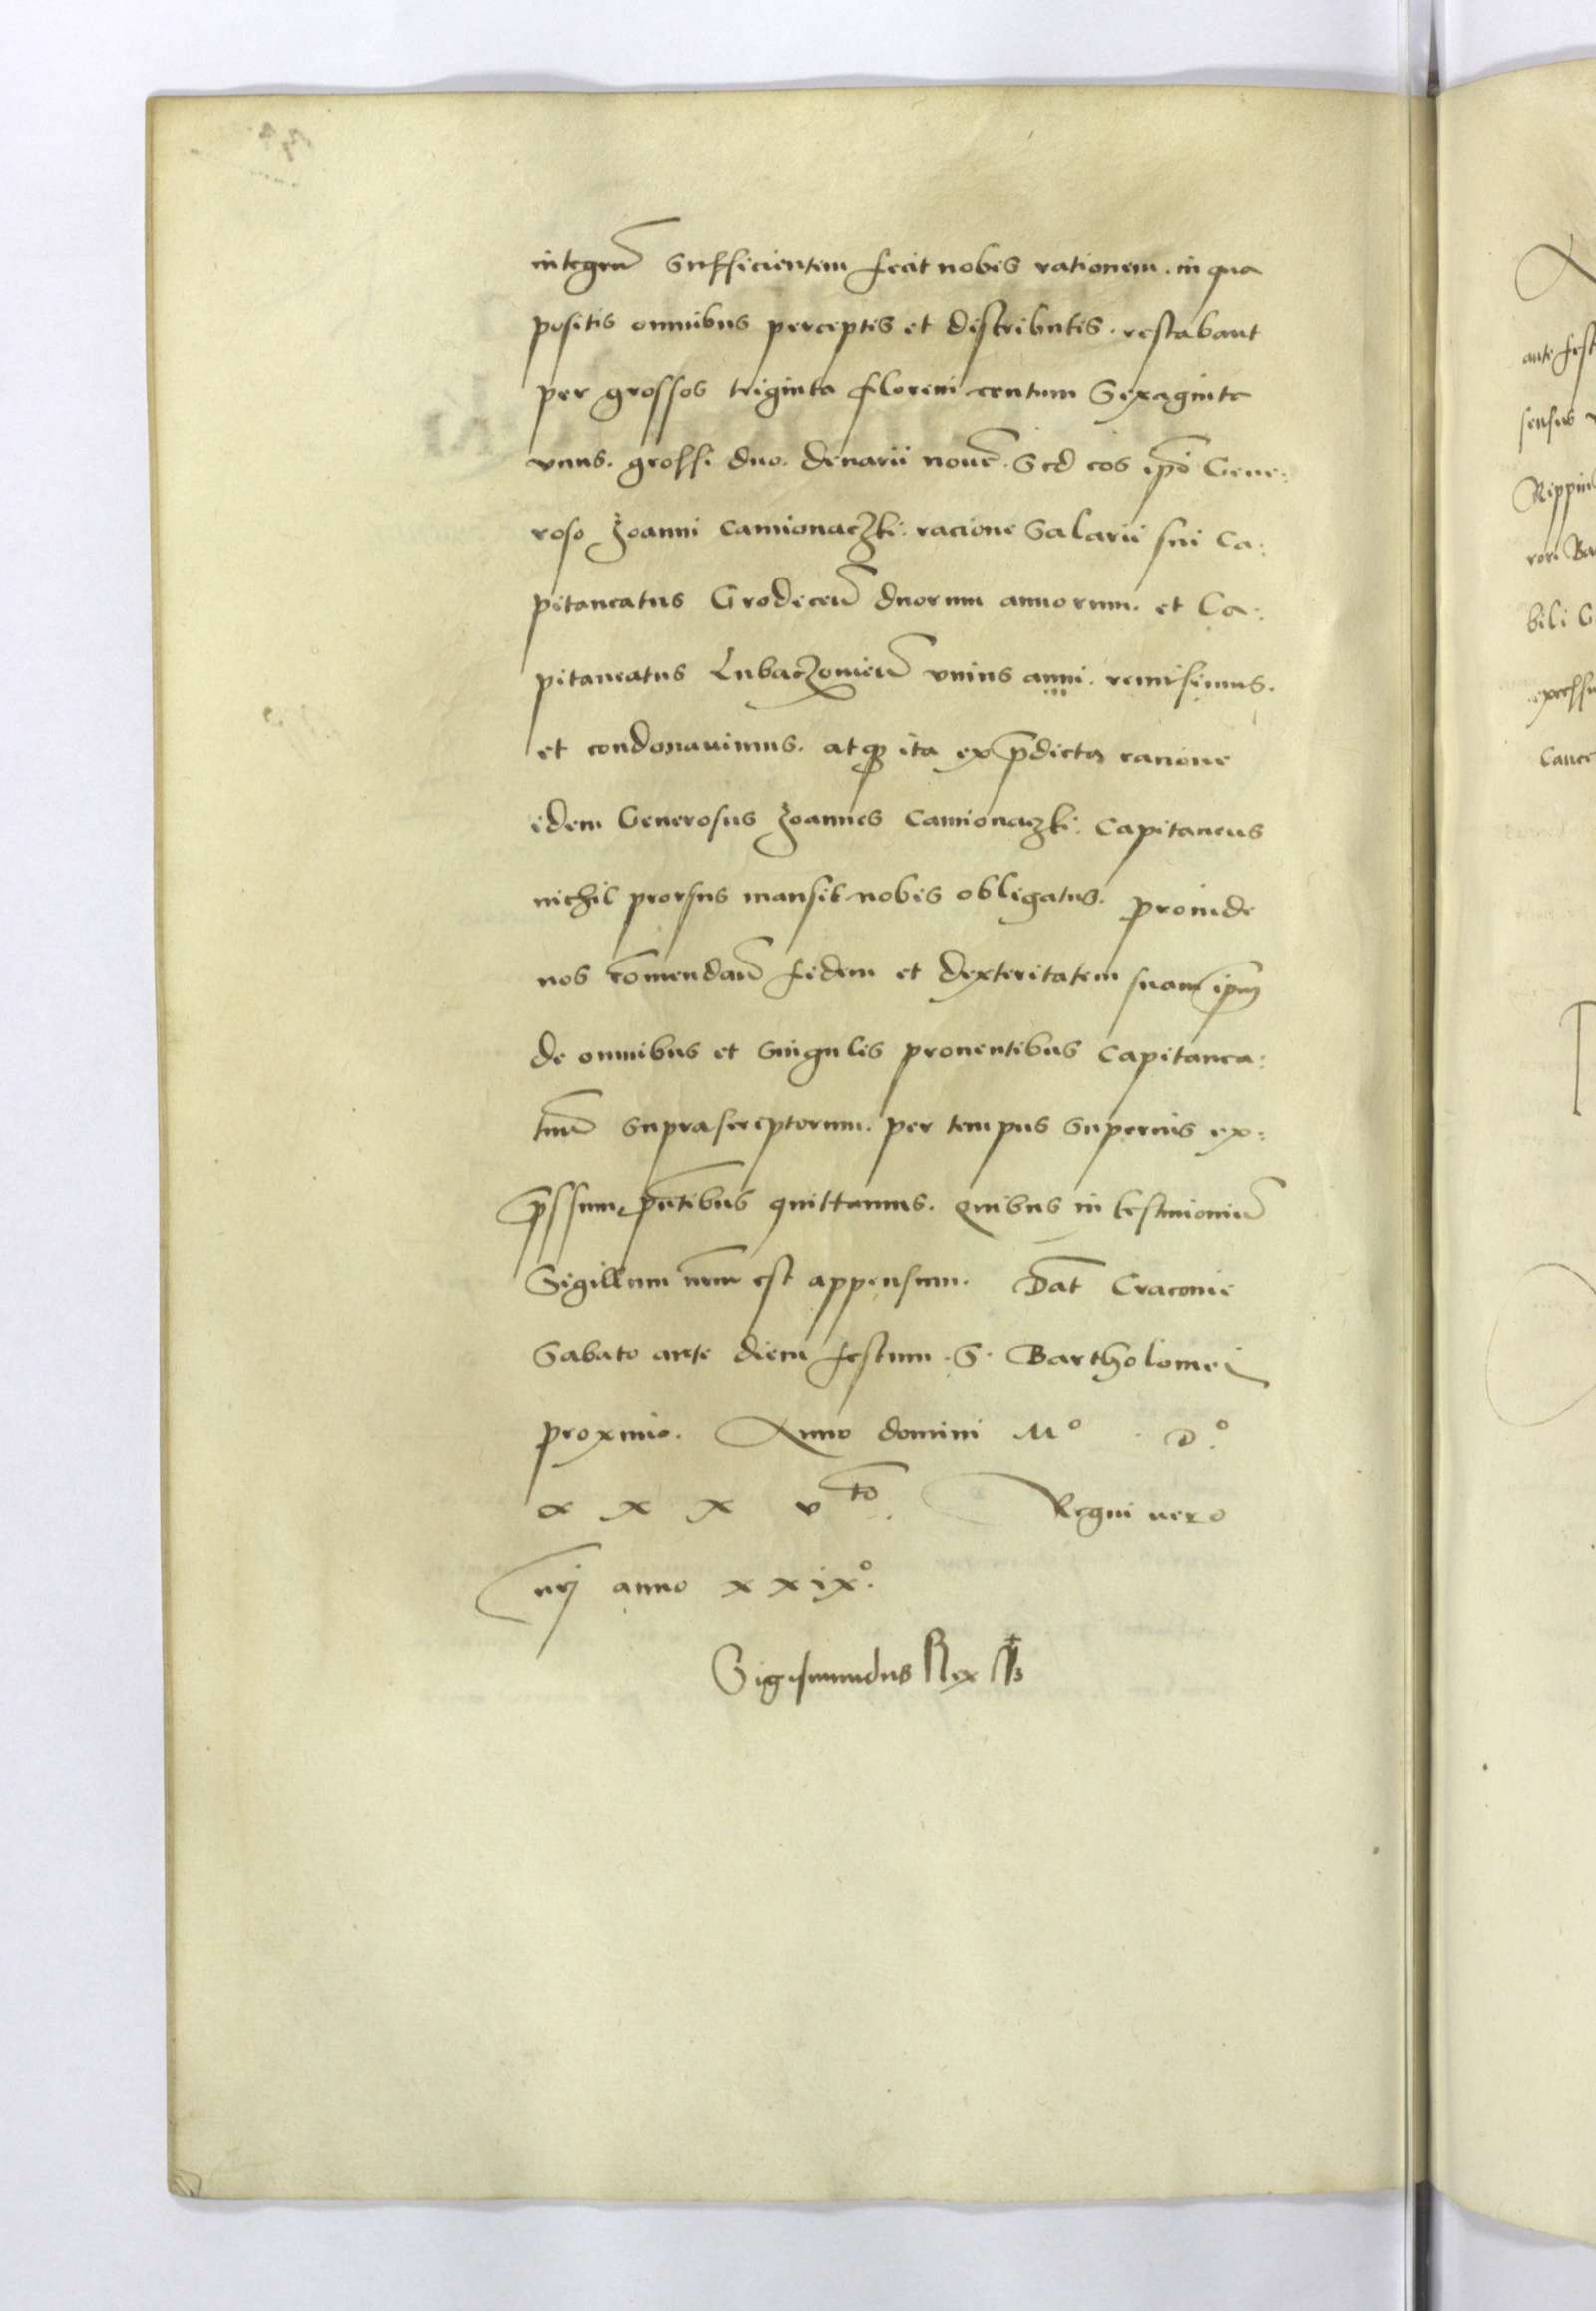 integrū Sufficientem fecit nobis rationem. in qua
positis omnibus perceptis et distributis. restabant
per grossos triginta floreni centum Sexaginta
vnus. grossi duo. denarii nouē. Sed eos ip̄o Gene:
roso Joanni Camionaczki. racione Salarii sui Ca:
pitaneatus Grodeceń duorum annorum. et Ca:
pitaneatus Lubaczouień vnius anni. remisimus.
et condonauimus. atq3 ita ex p̄dicta racione
idem Generosus Joannes Camionaczki. Capitaneus
nichil prorsus mansit nobis obligatus. proinde
nos cōmendań fidem et dexteritatem suam ip̄m
de omnibus et Singulis prouentibus Capitanea:
tuū Suprascriptorum. per tempus Superius ex:
p̄ssum, pn̄tibus quittamus. Quibus in testimoniū
Sigillum nr̄m est appensum. Dat̄ Cracouie
Sabato ante diem festum. S. Bartholomei
proximo. Anno domini Mº D.º
x x x vto. Regni vero
nr̄j anno x x i xº.
Sigismundus Rex
ante fest
bili G
Cance